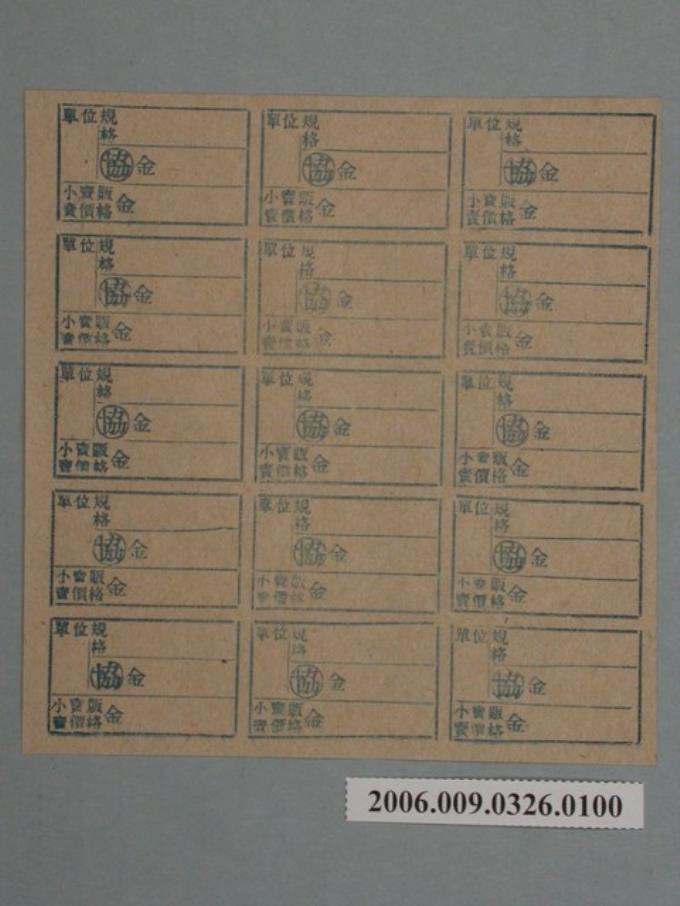 單位規
格
協金
小賣販
賣價格金
單位規
格
協金
小賣販
賣價格金
單位規
格
協金
小賣販
賣價格金
單位規
格
協金
小賣販
賣價格金
單位規
格
協金
小賣販
賣價格金
單位規
格
協金
小賣販
賣價格金
單位規
格
協金
小賣販
賣價格金
單位規
格
協金
小賣販
賣價格金
單位規
格
協金
小賣販
賣價格金
單位規
格
協金
小賣販
賣價格金
單位規
格
協金
小賣販
賣價格金
單位規
格
協金
小賣販
賣價格金
單位規
格
協金
小賣販
賣價格金
單位規
格
協金
小賣販
賣價格金
單位規
格
協金
小賣販
賣價格金
2006.009.0326.0100